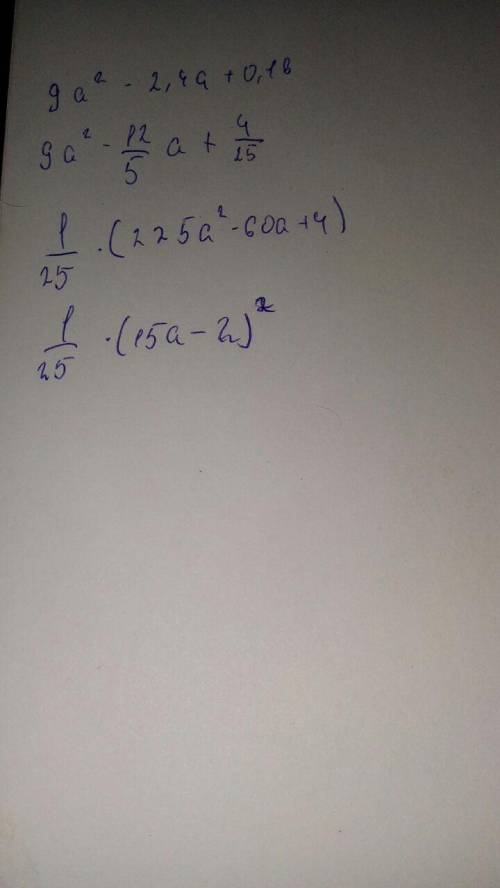 9a² - 2,4a + 0,16
9a² - 12/5 a + 4/25
1/25 · (225a² - 60a + 4)
1/25 · (15a - 2)²